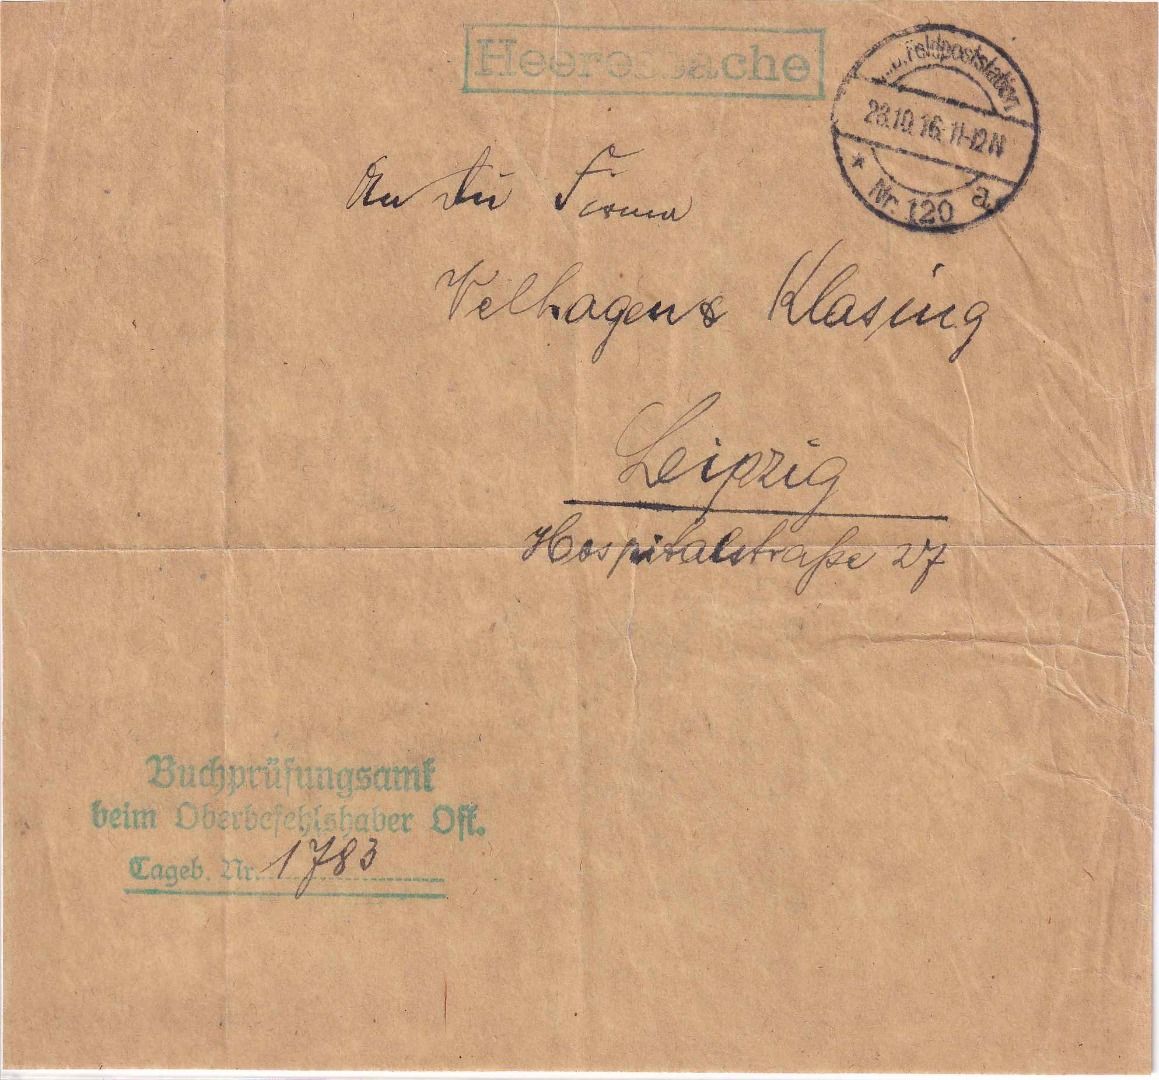 Heeressache
D. Feldpoststation
28.10.16. 11-12 N
* Nr. 120 a
An die Firma
Velhagen & Klasing
Leipzig
Hospitalstraße 27
Buchprüfungsamt
beim Oberbefehlshaber Ost.
Tageb. Nr. 1783